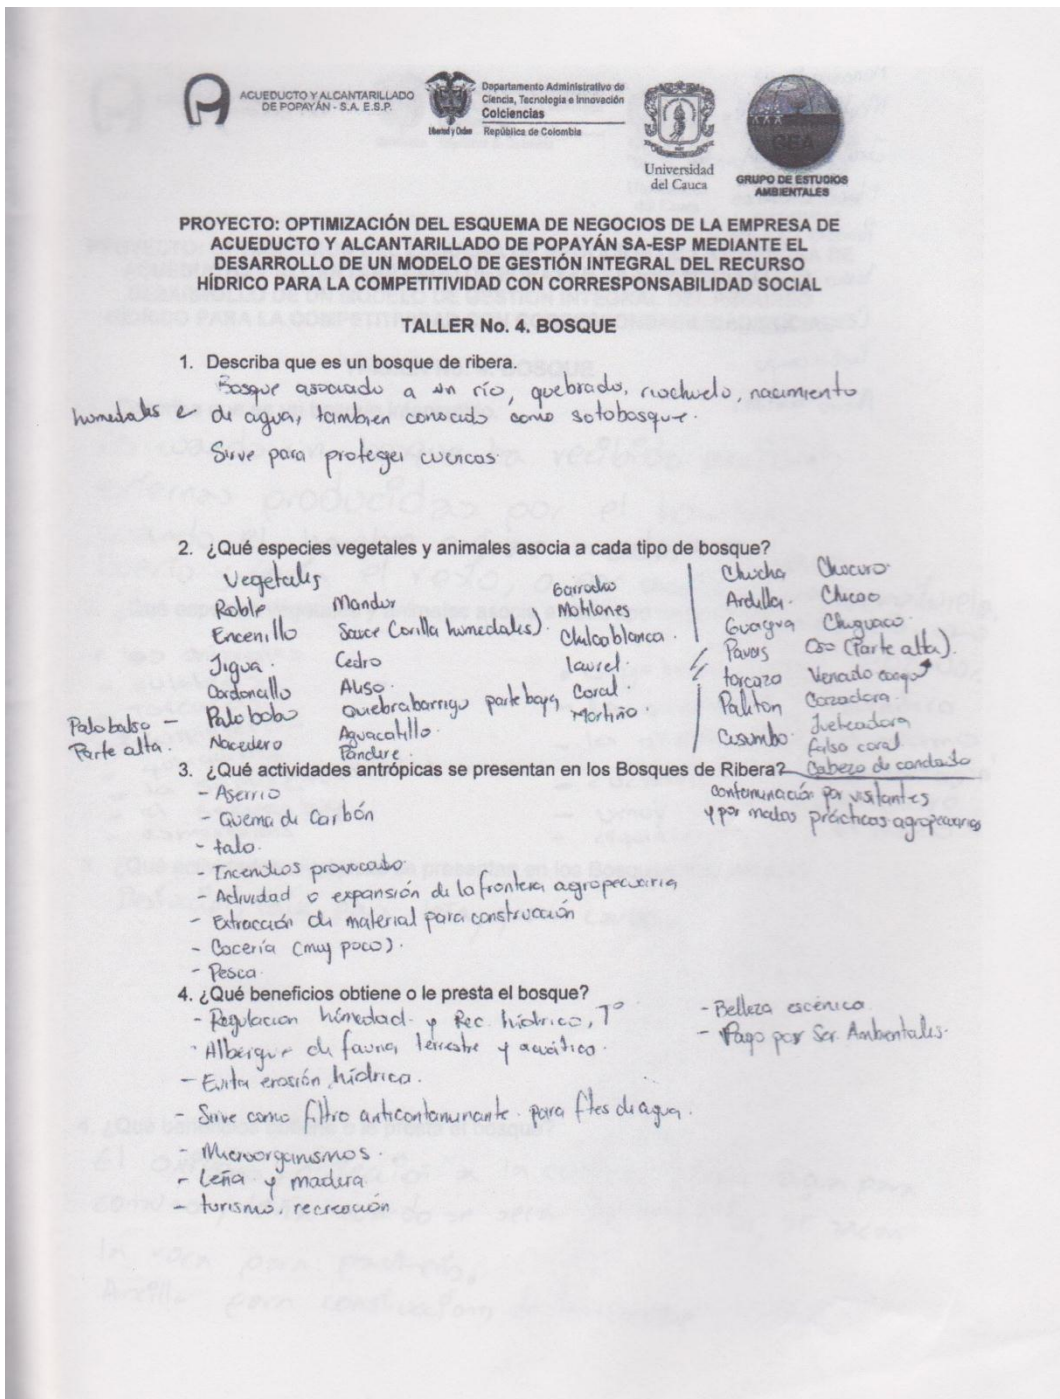 ACUEDUCTO Y ALCANTARILLADO
DE POPAYÁN - S.A. E.S.P.
Libertad y Orden
Departamento Administrativo de
Ciencia, Tecnología e Innovación
Colciencias
República de Colombia
Universidad
del Cauca
GEA
GRUPO DE ESTUDIOS
AMBIENTALES
PROYECTO: OPTIMIZACIÓN DEL ESQUEMA DE NEGOCIOS DE LA EMPRESA DE
ACUEDUCTO Y ALCANTARILLADO DE POPAYÁN SA-ESP MEDIANTE EL
DESARROLLO DE UN MODELO DE GESTIÓN INTEGRAL DEL RECURSO
HÍDRICO PARA LA COMPETITIVIDAD CON CORRESPONSABILIDAD SOCIAL
TALLER No. 4. BOSQUE
1. Describa que es un bosque de ribera.
Bosque asociado a un río, quebrada, riachuelo, nacimiento
humedales e de agua, tambien conocido como sotobosque.
Sirve para proteger cuencas.
2. ¿Qué especies vegetales y animales asocia a cada tipo de bosque?
Vegetales
Roble
Encenillo
Jigua.
Cordoncillo
Palobalso - Palo bobo
Parte alta. Nacedero
Mandur
Sauce (orilla humedales).
Cedro
Aliso.
Quiebrabarrigo parte baja
Aguacatillo.
Pandure.
Garrocho
Motilones
Chilcablanca.
laurel.
Coral.
Mortiño.
Chucha
Ardilla.
Guagua
Pavas
torcaza
Paleton
Cusumbo
Chocuro.
Chicao
Chiguaco.
Oso (Parte alta).
Venado conejo
Cazadora.
Jueteadora
falso coral
Cabeza de candado
3. ¿Qué actividades antrópicas se presentan en los Bosques de Ribera?
- Aserrio
- Quema de Carbón
- tala.
- Incendios provocado.
- Actividad o expansión de la frontera agropecuaria
- Extracción de material para construcción
- Cacería (muy poco).
- Pesca.
contaminación por visitantes
y por malas prácticas agropecuarias
4. ¿Qué beneficios obtiene o le presta el bosque?
- Regulacion húmedad y Rec. hídrico, T°
- Albergue de fauna terrestre y acuática.
- Evita erosión hídrica.
- Sirve como filtro anticontaminante para ftes de agua.
- Microorganismos.
- Leña y madera
- turismo, recreación
- Belleza escénica.
- Pago por Ser. Ambientales.